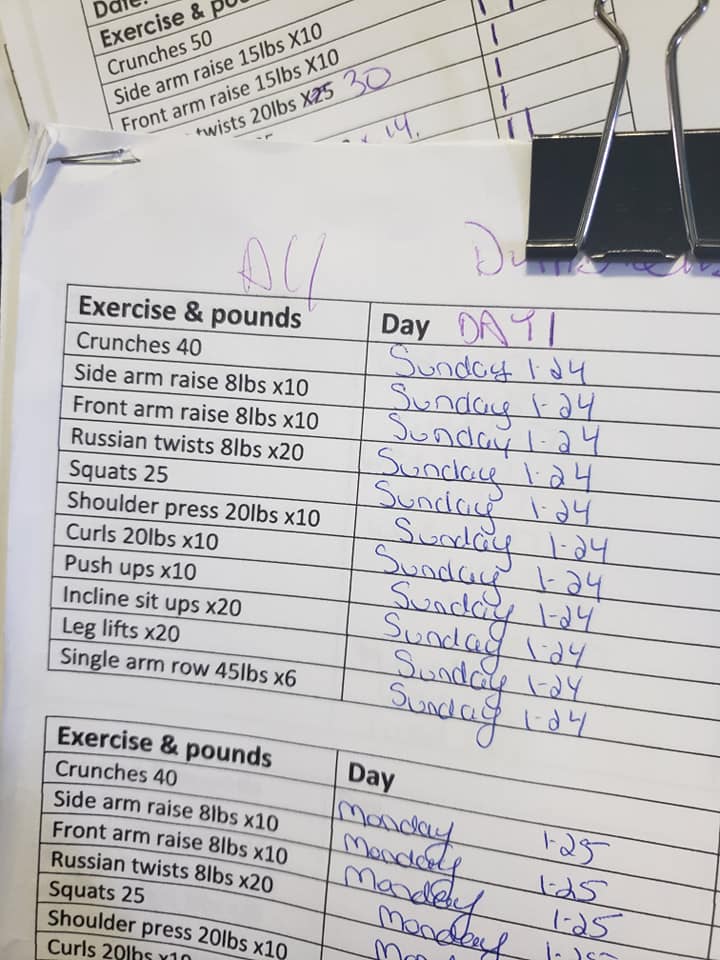 Date:
Exercise & po
Crunches 50
Side arm raise 15lbs X10
Front arm raise 15lbs X10
twists 20lbs X25 30
14.
Exercise & pounds Day DAY 1
Crunches 40 Sunday 1-24
Side arm raise 8lbs x10 Sunday 1-24
Front arm raise 8lbs x10 Sunday 1-24
Russian twists 8lbs x20 Sunday 1-24
Squats 25 Sunday 1-24
Shoulder press 20lbs x10 Sunday 1-24
Curls 20lbs x10 Sunday 1-24
Push ups x10 Sunday 1-24
Incline sit ups x20 Sunday 1-24
Leg lifts x20 Sunday 1-24
Single arm row 45lbs x6 Sunday 1-24
Exercise & pounds Day
Crunches 40 Monday 1-25
Side arm raise 8lbs x10 Monday 1-25
Front arm raise 8lbs x10 Monday 1-25
Russian twists 8lbs x20 Monday 1-25
Squats 25
Shoulder press 20lbs x10
Curls 20lbs x10